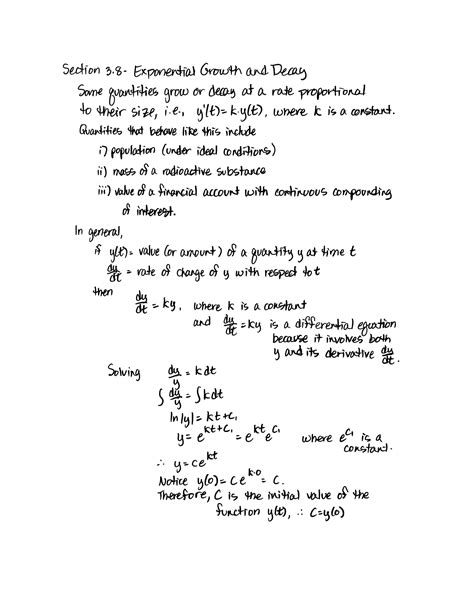 Section 3.8- Exponential Growth and Decay
Some quantities grow or decay at a rate proportional
to their size, i.e., y'(t)=k·y(t), where k is a constant.
Quantities that behave like this include
i) population (under ideal conditions)
ii) mass of a radioactive substance
iii) value of a financial account with continuous compounding
of interest.
In general,
if y(t)= value (or amount) of a quantity y at time t
dy/dt = rate of change of y with respect to t
then
dy/dt = ky, where k is a constant
and dy/dt = ky is a differential equation
because it involves both
y and its derivative dy/dt.
Solving dy/y = k dt
∫ dy/y = ∫ k dt
ln|y| = kt+C₁
y = e^(kt+C₁) = e^(kt) e^(C₁) where e^(C₁) is a
constant.
∴ y = ce^(kt)
Notice y(0) = C e^(k·0) = C.
Therefore, C is the initial value of the
function y(t), ∴ C=y(0)